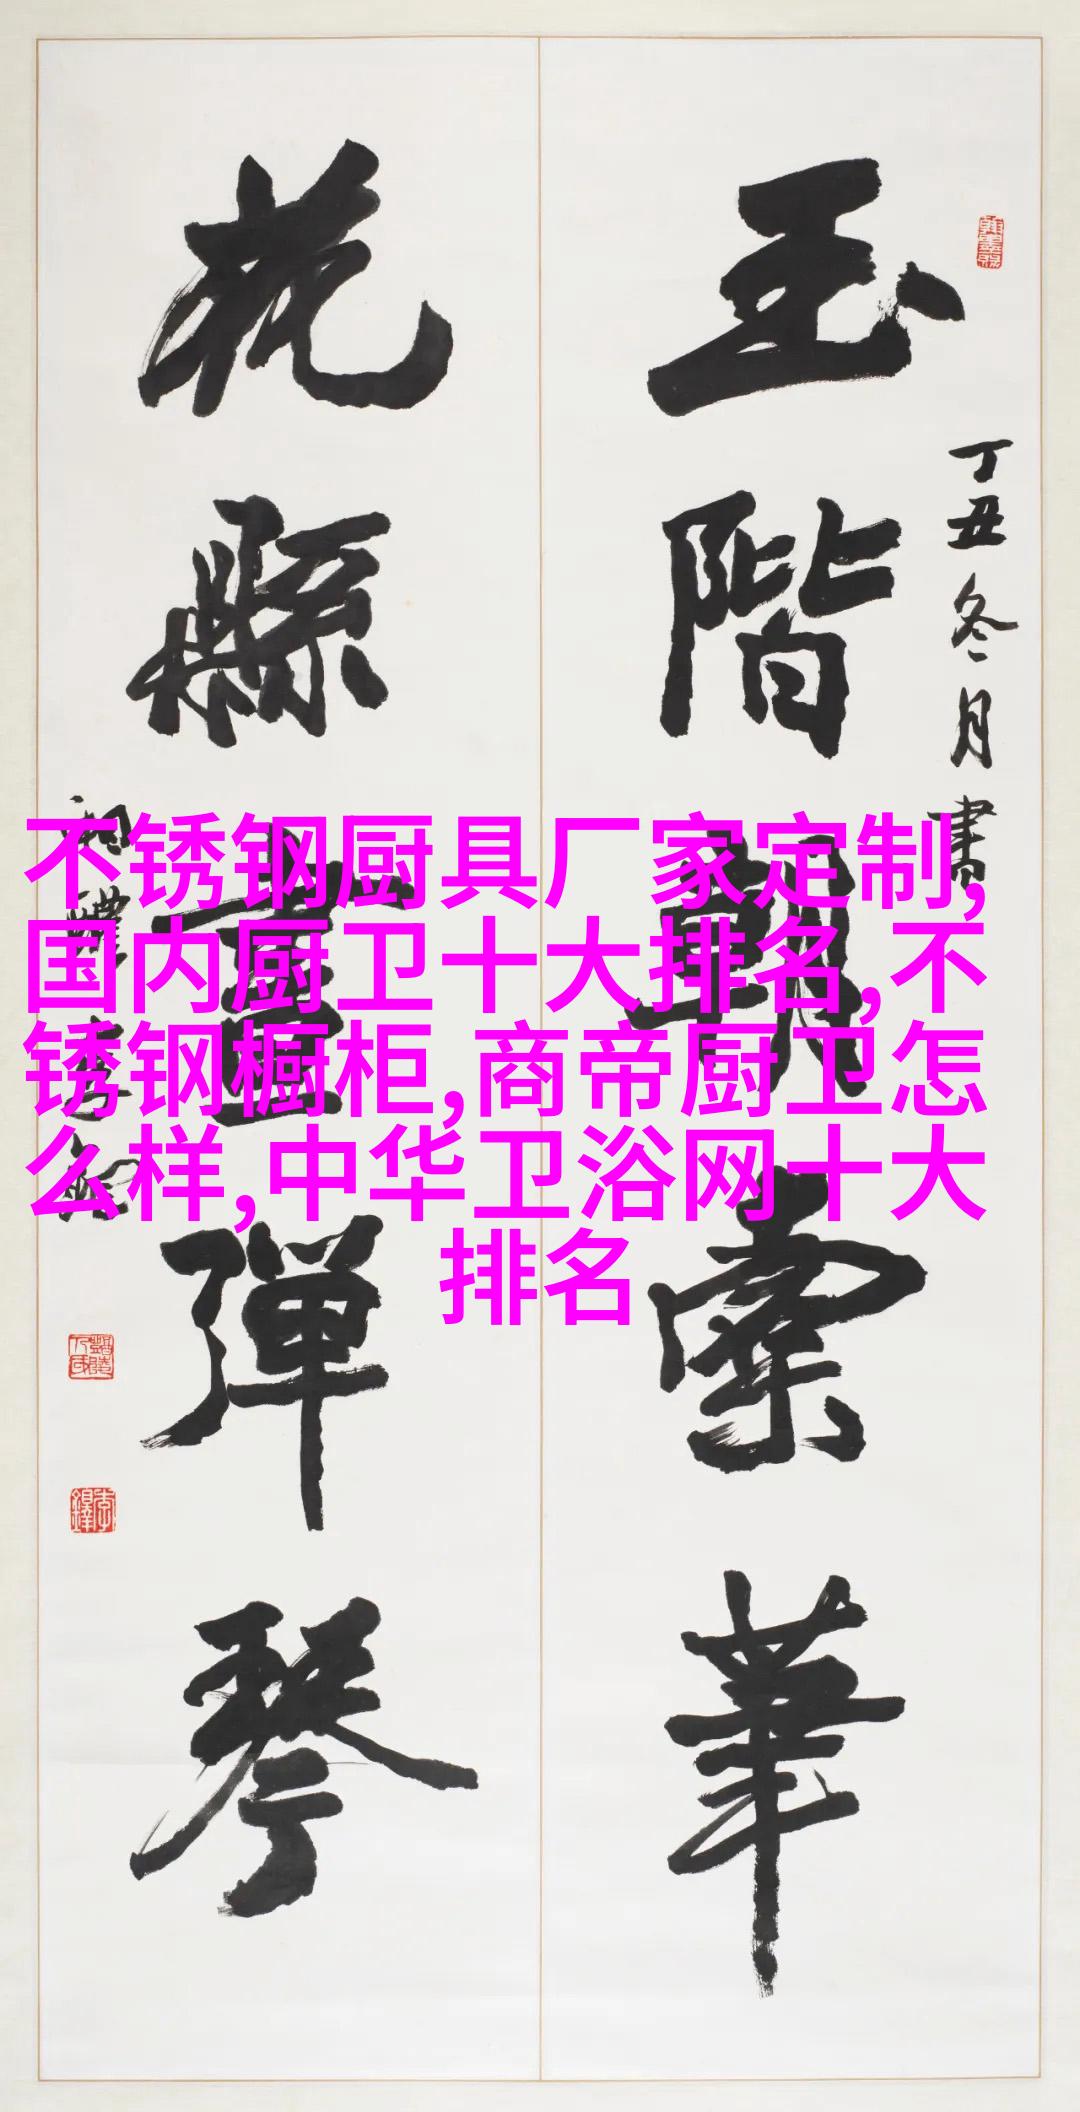 玉階朝索筆
丁丑冬月書
花縣畫彈琴
不锈钢厨具厂家定制,
国内厨卫十大排名,不
锈钢橱柜,商帝厨卫怎
么样,中华卫浴网十大
排名